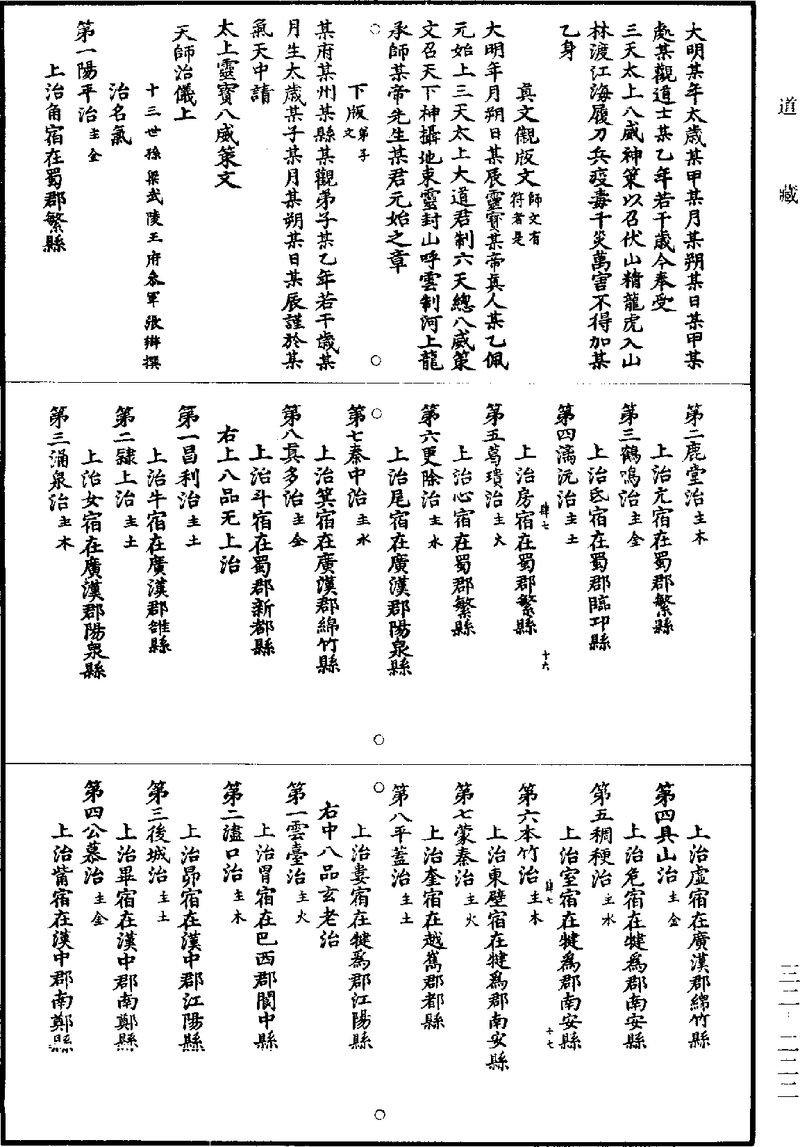 道藏
大明某年太歲某甲某月某朔某日某甲某
處某觀道士某乙年若干歲今奉受
三天太上八威神策以召伏山精龍虎入山
林渡江海履刀兵疫毒千災萬害不得加某
乙身
真文觀版文師文有符者是
大明年月朔日某辰靈寶某帝真人某乙佩
元始上三天太上大道君制六天總八威策
文召天下神攝地束靈封山呼雲制河上龍
承師某帝先生某君元始之章
下版弟子文
某府某州某縣某觀弟子某乙年若干歲某
月生太歲某子某月某朔某日某辰謹於某
氣天中請
太上靈寶八威策文
天師治儀上
十三世孫梁武陵王府參軍張辯撰
治名氣
第一陽平治主金
上治角宿在蜀郡繁縣
第二鹿堂治主木
上治亢宿在蜀郡繁縣
第三鶴鳴治主金
上治氐宿在蜀郡臨邛縣
第四漓沅治主土
上治房宿在蜀郡繁縣
肆七 十六
第五葛璝治主火
上治心宿在蜀郡繁縣
第六更除治主水
上治尾宿在廣漢郡陽泉縣
第七秦中治主水
上治箕宿在廣漢郡綿竹縣
第八真多治主金
上治斗宿在蜀郡新都縣
右上八品无上治
第一昌利治主土
上治牛宿在廣漢郡雒縣
第二隸上治主土
上治女宿在廣漢郡陽泉縣
第三涌泉治主木
上治虛宿在廣漢郡綿竹縣
第四具山治主金
上治危宿在犍爲郡南安縣
第五稠稉治主水
上治室宿在犍爲郡南安縣
肆七 十七
第六本竹治主木
上治東壁宿在犍爲郡南安縣
第七蒙秦治主火
上治奎宿在越嶲郡都縣
第八平蓋治主土
上治婁宿在犍爲郡江陽縣
右中八品玄老治
第一雲臺治主火
上治胃宿在巴西郡閬中縣
第二濜口治主木
上治昴宿在漢中郡江陽縣
第三後城治主土
上治畢宿在漢中郡南鄭縣
第四公慕治主金
上治觜宿在漢中郡南鄭縣
三二·二二二